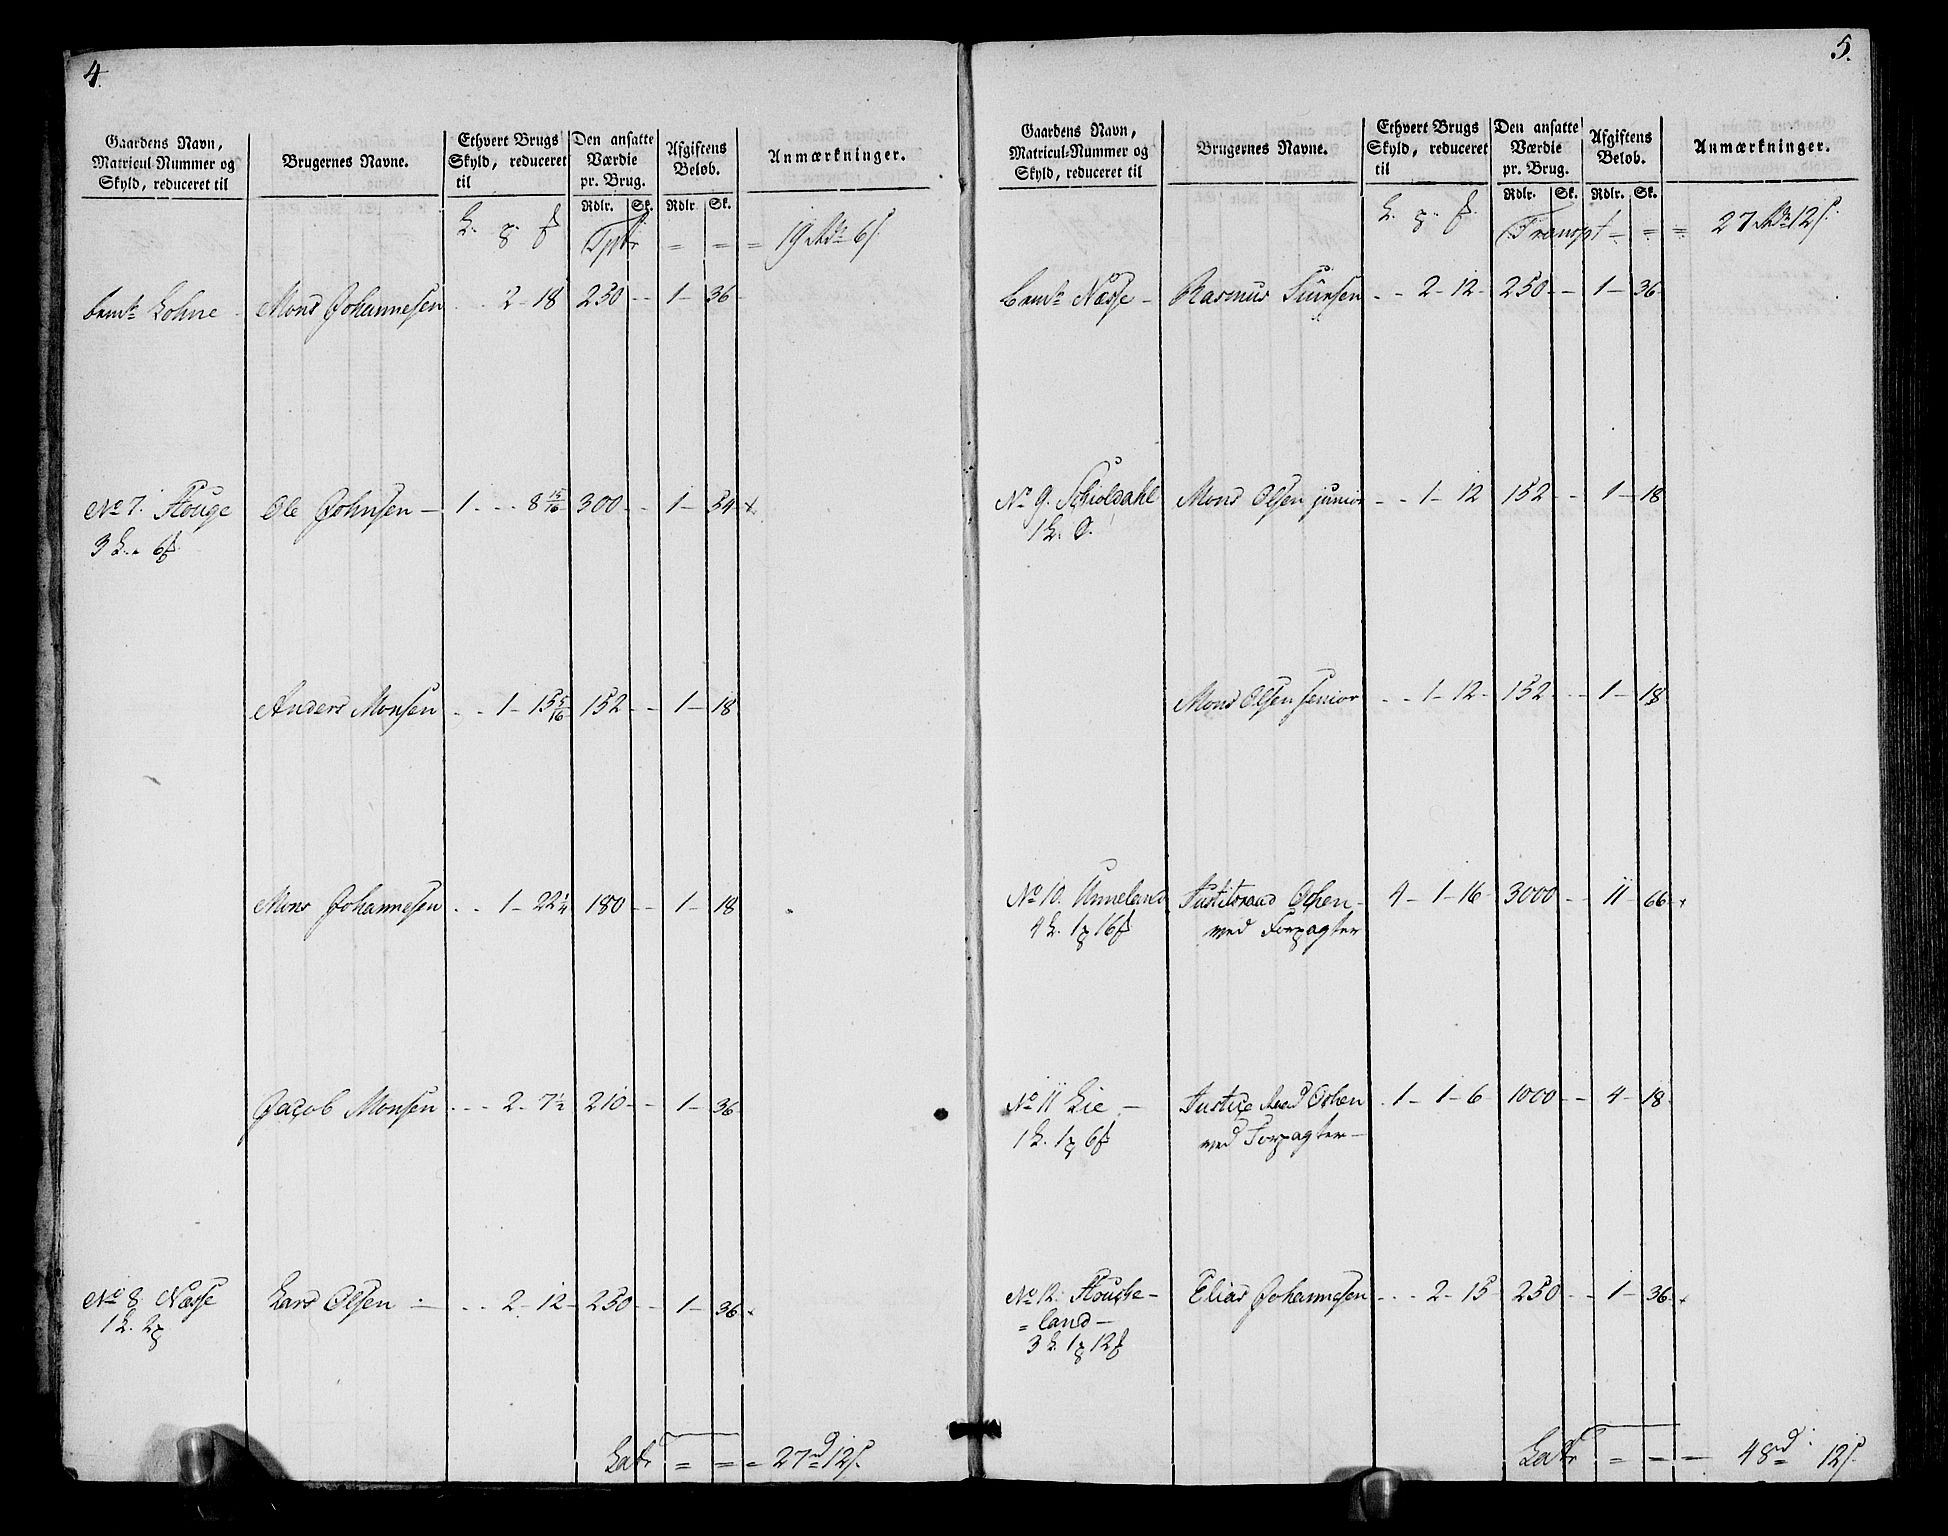 4.
Gaardens Navn, Matricul-Nummer og Skyld, reduceret til
Brugernes Navne.
Ethvert Brugs Skyld, reduceret til
Den ansatte Værdie pr. Brug.
Afgiftens Beløb.
Anmærkninger.
Rdlr. Sk. Rdlr. Sk.
19 6
Lohne Mons Johannesen - - 2 - 18 250 - - 1 - 36
No 7. Houge Ole Johnsen - 1 - - - 8 15/16 300 - - 1 - 54
3 6
Anders Monsen - - 1 - 15 5/16 152 - - 1 - 18
Mons Johannesen - - 1 - 22 1/4 180 - - 1 - 18
Jacob Monsen - - - 2 - 7 1/2 210 - - 1 - 36
No 8. Næsse Lars Olsen - - - 2 - 12 - 250 - - 1 - 36
1 2
Latr = = = 27 12
5.
Gaardens Navn, Matricul-Nummer og Skyld, reduceret til
Brugernes Navne.
Ethvert Brugs Skyld, reduceret til
Den ansatte Værdie pr. Brug.
Afgiftens Beløb.
Anmærkninger.
Rdlr. Sk. Rdlr. Sk.
Transpt - = = 27 12
Næsse - Rasmus - - 2 - 12 - 250 - - 1 - 36
No 9. Schioldahl Mons Olsen junior - - 1 - 12 152 - - 1 - 18
Mons Olsen senior - - 1 - 12 - 152 - - 1 - 18
No 10. Unneland Justitsraad - 4 - 1 - 16 - 3000 - - 11 - 66
4 1 16 med Forpagter
No 11 Lie - Justice Raad - 1 - 1 - 6 1000 - - 4 - 18
1 1 6 med Forpagter -
No 12. Houche- Elias Johannesen - - - 2 - 15 250 - - 1 - 36
= land -
3 1 12
Latr = - - 48 12